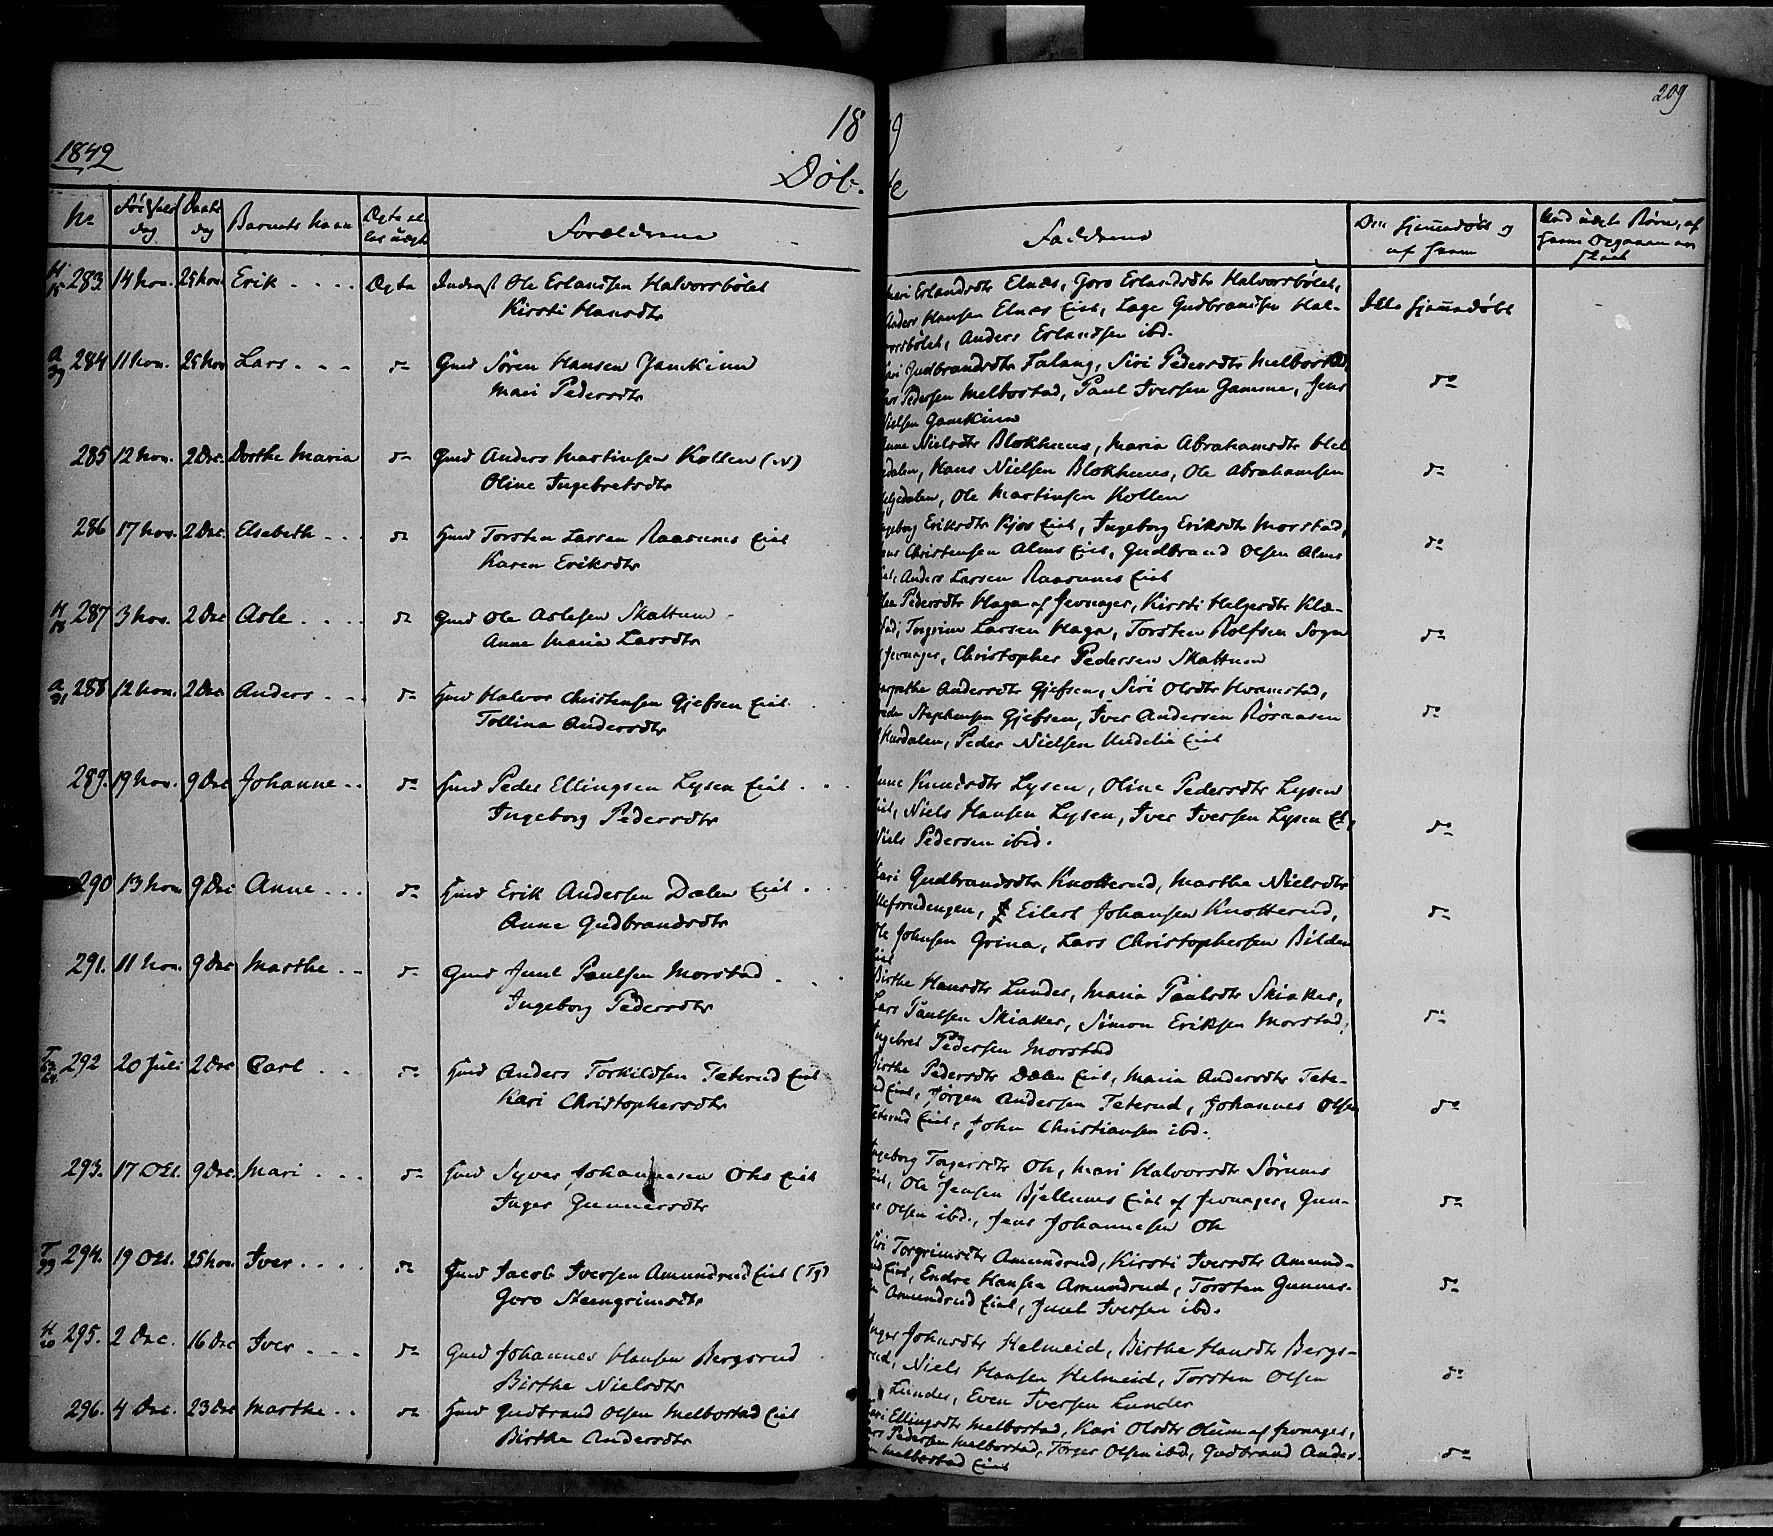 209
18
1849
Døb.
No
Fødsels dag
Daabs dag
Barnets Navn
Ægte el. ei ægte
Forældrene
Fadderne
Om hjemmedøbt og af hvem
283 14 Nov. 25 Nov. Erik Ægte Inderst Ole Erlandsen Halvorsbølet
Kirsti Hansdtr
Erlandsdtr Elnæs, Goro Erlandsdtr Halvorsbølet,
Anders Hansen Elnæs Eiet, Lage Gudbrandsen Hal-
vorsbølet, Anders Erlandsen ibd.
Ikke hjemmedøbt
284 11 Nov. 25 Nov Lars do Gmd Søren Hansen Gamkinn
Mari Pedersdtr
Gudbrandsdtr Falang, Siri Pedersdtr Melbostad,
Pedersen Melbostad, Paul Iversen Gamme, Jens
Nielsen Gamkinn
do
285 12 Nov. 2 Dec. Dorthe Maria do Gmd Anders Martinsen Kollen (N)
Oline Ingebretsdtr
Nielsdtr Blokhuus, Maria Abrahamsdtr
Hans Nielsen Blokhuus, Ole Abrahamsen
Ole Martinsen Kollen
do
286 17 Nov. 2 Dec. Elsebeth do Hmd Torsten Larsen Raasnæs Eiet
Karen Eriksdtr
Ingeborg Eriksdtr Kjos Eiet, Ingeborg Eriksdtr Morstad,
Christensen Alms Eiet, Gudbrand Olsen Alms
Anders Larsen Raasnæs Eiet
do
H 18 287 3 Nov. 2 Dec Asle do Gmd Ole Aslesen Skattum
Anne Maria Larsdtr
Pedersdtr Haga af Jevnager, Kirsti Helgesdtr Klæ-
Torgrim Larsen Haga, Torsten Rolfsen Sogn
Jevnager, Christopher Pedersen Skattum
do
288 12 Nov. 2 Dec. Anders do Hmd Halvor Christensen Gjefsen Eiet
Tolline Andersdtr
Andersdtr Gjefsen, Siri Olsdtr Hvamstad,
Stephensen Gjefsen, Iver Andersen Røsaasen
Hurdalen, Peder Nielsen Eiet
do
289. 19 Nov. 9 Dec Johanne do Hmd Peder Ellingsen Lysen Eiet
Ingeborg Pedersdtr
Knudsdtr Lysen, Oline Pedersdtr Lysen
Niels Hansen Lysen, Iver Iversen Lysen
Niels Pedersen ibid.
do
290 13 Nov 9 Dec Anne do Hmd Erik Andersen Dælen Eiet
Anne Gudbrandsdtr
Kari Gudbrandsdtr Knotterud, Marthe Nielsdtr
Eilert Johansen Knotterud,
Ole Johnsen Grina, Lars Christophersen Bilden
Eiet
do
291. 11 Nov. 9 Dec Marthe do Gmd Juul Paulsen Morstad
Ingeborg Pedersdtr
Birthe Hansdtr Lunder, Maria Paulsdtr Skiaker,
Lars Paulsen Skiaker, Simon Eriksen Morstad,
Ingebret Pedersen Morstad
do
292 20 Juli 2 Dec Carl do Hmd Anders Torkildsen Teterud Eiet
Kari Christophersdtr
Birthe Pedersdtr Dælen Eiet, Maria Andersdtr Tete-
rud Eiet, Jørgen Andersen Teterud, Johannes Olsen
Teterud Eiet, John Christiansen ibd.
do
293. 17 Oct. 9 Dec. Mari do Hmd Syver Johannesen Ohs Eiet
Inger Gunnersdtr
Ingeborg Torgersdtr Oh, Mari Halvorsdtr Sørums
Ole Jensen Bjellums Eiet af Jevnager, Gun-
Olsen ibd., Jens Johannesen Oh
do
294. 19 Oct. 25 Nov. Iver do Hmd Jacob Iversen Amundrud Eiet (Tg)
Goro Steengrimsdtr
Siri Torgrimsdtr Amundrud, Kirsti Iversdtr Amund-
rud Eiet, Endre Hansen Amundrud, Torsten Gunners-
Amundrud Eiet, Juul Iversen ibd.
do
H 20 295. 2 Dec. 16 Dec Iver do Gmd Johannes Hansen Bergsrud
Birthe Nielsdtr
Inger Johnsdtr Helmeid, Birthe Hansdtr Bergs-
rud, Niels Hansen Helmeid, Torsten Olsen
Lunder, Even Iversen Lunder
do
296. 4 Dec. 23 Dec Marthe do Hmd Gudbrand Olsen Melbostad Eiet
Birthe Andersdtr
Ellingsdtr Melbostad, Kari Olsdtr Olum af Jevnager,
Pedersen Melbostad, Torger Olsen ibd, Gudbrand Anders-
Melbostad Eiet
do